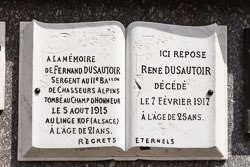 A LA MÉMOIRE
DE FERNAND DUSAUTOIR
SERGENT AU 11E BAILLON
DE CHASSEURS ALPINS
TOMBÉ AU CHAMP D'HONNEUR
LE 5 AOUT 1915
AU LINGE KOF (ALSACE)
À L'ÂGE DE 21 ANS.
REGRETS
ICI REPOSE
RENÉ DUSAUTOIR
DÉCÉDÉ
LE 7 FÉVRIER 1917
À L'ÂGE DE 25 ANS.
ETERNELS